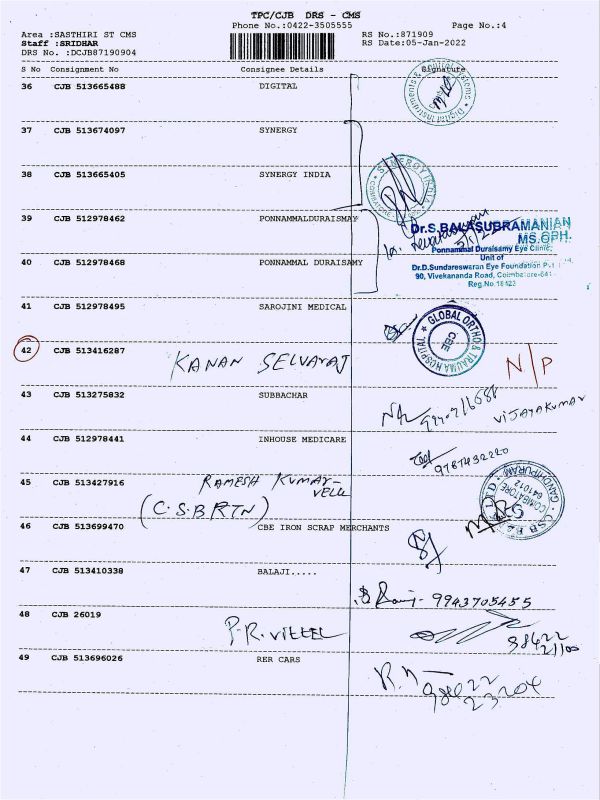 TPC/CJB DRS - CMS
Phone No.:0422-3505555
Page No.:4
Area :SASTHIRI ST CMS
RS No.:871909
Staff :SRIDHAR
RS Date:05-Jan-2022
DRS No. :DCJB87190904
S No Consignment No Consignee Details Signature
36 CJB 513665488 DIGITAL
37 CJB 513674097 SYNERGY
38 CJB 513665405 SYNERGY INDIA
SYNERGY INDIA
39 CJB 512978462 PONNAMMALDURAISMAY
Dr.S.BALASUBRAMANIAN
MS.OPH.
Ponnammal Duraisamy Eye Clinic,
Unit of
40 CJB 512978468 PONNAMMAL DURAISAMY
Dr.D.Sundareswaran Eye Foundation
90, Vivekananda Road,
Reg.No.18423
41 CJB 512978495 SAROJINI MEDICAL
GLOBAL ORTHO & TRAUMA HOSPITAL
CBE
42 CJB 513416287 KANAN SELVARAJ N/P
43 CJB 513275832 SUBBACHAR
VIJAYAKUMAR
44 CJB 512978441 INHOUSE MEDICARE
9787432220
45 CJB 513427916 RAMESH KUMAR-
VELU
(C.S.B RTN)
COIMBATORE
641012
GANDHIPURAM
46 CJB 513699470 CBE IRON SCRAP MERCHANTS
47 CJB 513410338 BALAJI.....
9943705455
48 CJB 26019 P.R. VITTEL
98422
21100
49 CJB 513696026 RER CARS
98422
23204